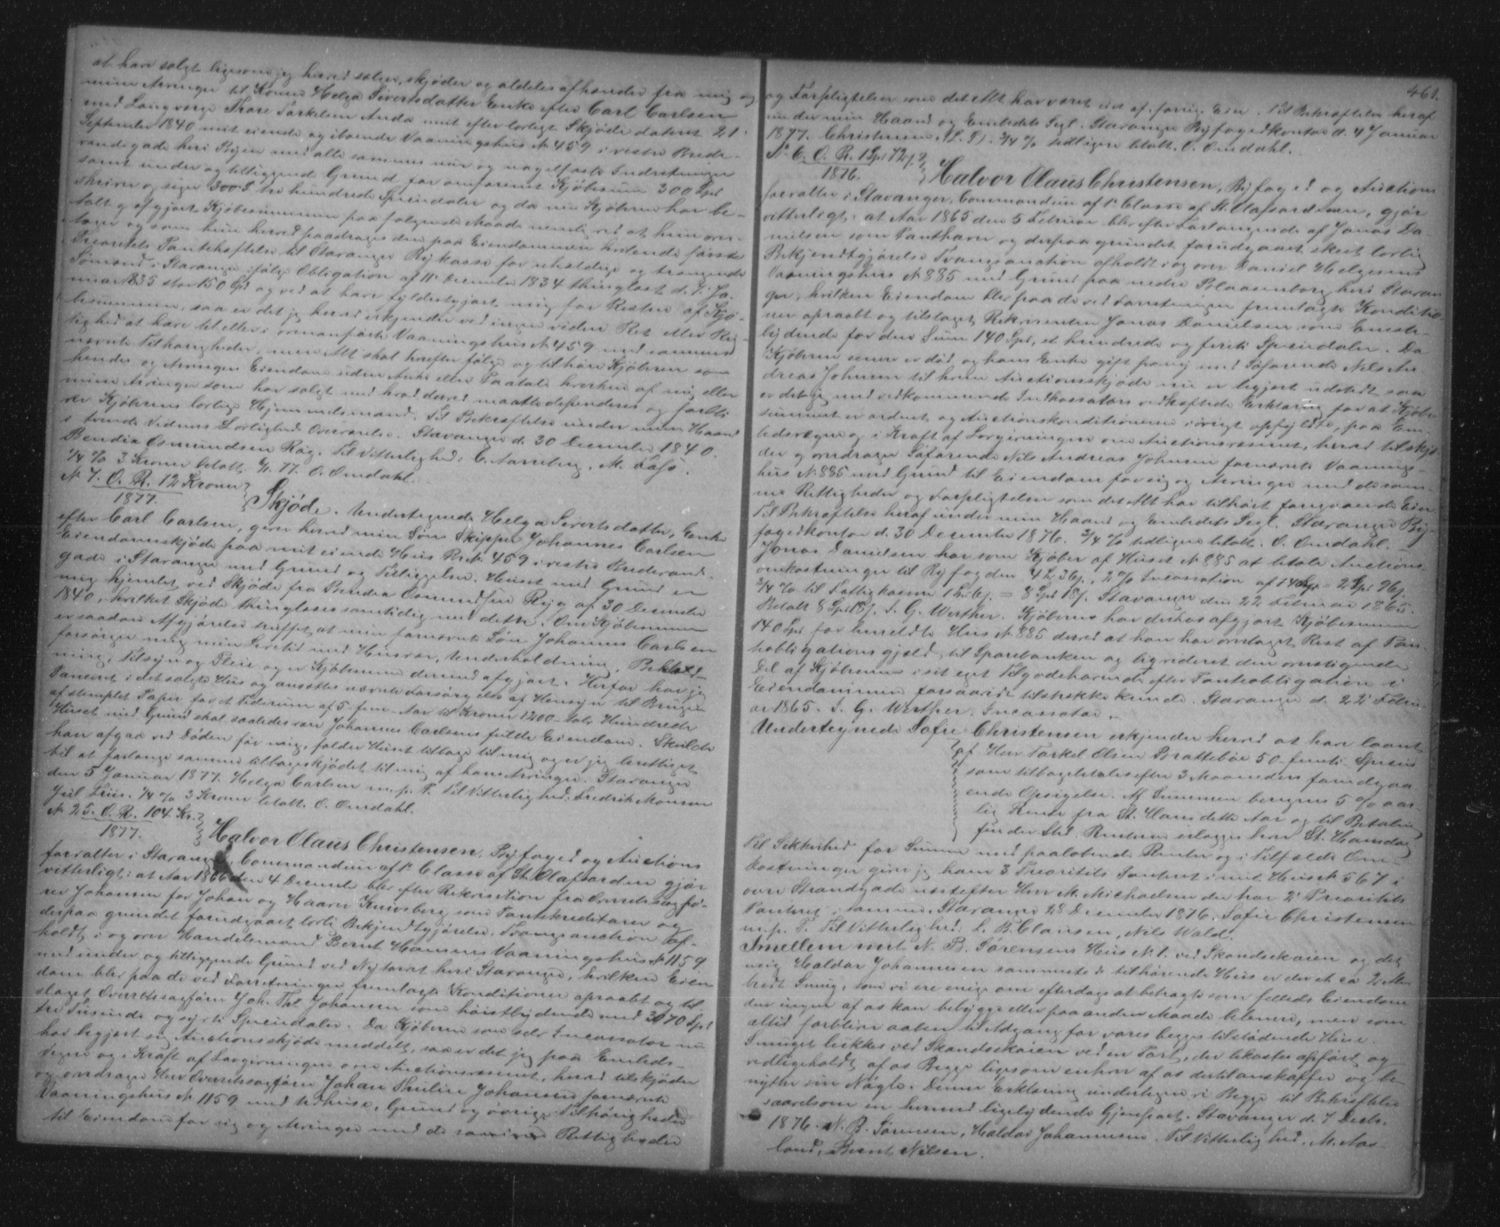 at have solgt ligesom jeg herved sælger, skjøder og aldeles afhænder fra mig og
mine Arvinger til Konen Helga Sivertsdatter Enke efter Carl Carlsen
med Laugværge Thore Torkelsen Anda mit efter lovligt Skjøde dateret 21
September 1840 mit eiende og iboende Vaaningshus No 459 i vestre Brede-
vandgade heri Byen med alle sammes mur og nagelfaste Indretninger
samt under og tilliggende Grund for omforenet Kjøbesum 300 Spd
skriver og siger 300 S. tre hundrede Speciedaler og da nu Kjøberen har be-
talt og afgjort Kjøbesummen paa følgende Maade nemlig ved at hun over-
tager og som hun herved paadrages den paa Eiendommen heftende første
Prioritets Pantehæftelse til Stavanger Bykasse for uheldige og trængende
Sømænd i Stavanger ifølge Obligation af 11 December 1834 thinglæst d. 8 Ja-
nuar 1835 stor 150 Spd og ved at have fyldestgjort mig for Resten af Kjø-
besummen, saa er det jeg herved erkjender ved ingen videre Ret eller Rig-
tighed at have til eller i ovenanførte Vaaningshus No 459 med sammes
nævnte Tilhørigheder, men Alt skal herefter følge og tilhøre Kjøberen som
hendes og Arvinges Eiendom uden Anke eller Paatale hverken af mig eller
mine Arvinger som har solgt med hvad derved maatte dependeres og forbli-
ver Kjøberens lovlige Hjemmelsmand. Til Bekræftelse under min Haand
i tvende Vidners Lovlighed Overværelse. Stavanger d. 30 December 1840.
Bendia Osmundsen Røg. Til Vitterlighed: C. Aarreberg, M. Lassø.
1/4 % 3 Kroner betalt 6/1 77. O. Omdahl.
No 7. O. R. 12 Kroner
1877.
Skjøde. Undertegnede Helga Sivertsdatter, Enke
efter Carl Carlsen, giver herved min Søn Skipper Johannes Carlsen
Eiendomsskjøde paa mit eiende Hus No 459 i vestre Bredevand-
gade i Stavanger med Grund og Tilliggelse. Huset med Grund er
mig hjemlet ved Skjøde fra Bendia Osmundsen Røg af 30 December
1840, hvilket Skjøde thinglæses samtidig med dette. Om Kjøbesummen
er saadan Afgjørelse truffet, at min fornævnte Søn Johannes Carlsen
forsørger mig min Levetid med Husvær, Underholdning, Beklæd-
ning, Tilsyn og Pleie og er Kjøbesum dermed afgjort. Herfor har jeg
Panteret i det solgte Hus og ansættes nævnte Forsørgelse af Hensyn til Brugen
af stemplet Papir for et Tiderum af 5 fem Aar til Kroner 1200 Tolv Hundrede
Huset med Grund skal saaledes være Johannes Carlsens fulde Eiendom. Skulde
han afgaa ved Døden før mig, falder Huset tilbage til mig og er jeg berettiget
til at forlange samme tilbageskjødet til mig af hans Arvinger. Stavanger
den 5 Januar 1877. Helga Carlsen m. p. P. Til Vitterlighed: Fredrik Monsen
Juel Friis. 1/4 % 3 Kroner betalt. O. Omdahl.
No 25. O. R. 104 Kr.
1877.
Halvor Olaus Christensen, Byfoged og Auctions
forvalter i Stavanger, Commandeur af 1ste Classe af St. Olafsorden gjør
vitterligt: at Aar 1866 den 4 December blev efter Rekvisition fra Overretssagfø-
rer Johansen for Johan og Haaver Knivsberg som Pantekreditorer og
derpaa grundet forudgaaet lovlig Bekjendtgjørelse, Tvangsauction af-
holdt i og over Handelsmand Bernt Hansens Vaaningshus No 1159
med under og tilliggende Grund ved Nytorvet heri Stavanger, hvilken Eien-
dom blev paa de ved Forretningen fremlagte Konditioner opraabt og til-
slaget Overretssagfører Joh. Thl. Johansen som høistbydende med 3070 Spd
tre Tusinde og sytti Speciedaler. Da Kjøberen som selv Incassator nu
har begjært sig Auctionsskjøde meddelt, saa er det jeg paa Embeds-
vegne og i Kraft af Lovgivningen om Auctionsvæsenet, herved tilskjøder
og overdrager Herr Overretssagfører Johan Thulin Johansen fornævnte
Vaaningshus No 1159 med Udhuse, Grund og øvrige Tilhørigheder
til Eiendom for sig og Arvinger med de samme Rettigheder
461.
og Forpligtelser som det Alt har været eiet af forrige Eier. Til Bekræftelse heraf
under min Haand og Embedets Segl. Stavanger Byfogedkontor d. 4 Januar
1877. Christensen. (L. S.) 3/4 % tidligere betalt. O. Omdahl.
No 6. O. R. 1 Spd 72 s.
1876.
Halvor Olaus Christensen, Byfoged og Auctions
forvalter i Stavanger, Commandeur af 1ste Classe af St. Olafsordenen, gjør
vitterligt: at Aar 1865 den 5 Februar blev efter Forlangende af Jonas Da-
nielsen som Panthaver og derpaa grundet forudgaaet skeet lovlig
Bekjendtgjørelse Tvangsauction afholdt i og over Daniel Helgesens
Vaaningshus No 885 med Grund paa nedre Blaasenborg heri Stavan-
ger, hvilken Eiendom blev paa de ved Forretningen fremlagte Konditio-
ner opraabt og tilslaget Rekvirenten Jonas Danielsen som Eneste-
bydende for den Sum 140 Spd, et hundrede og firti Speciedaler. Da
Kjøberen senere er død og hans Enke gift paany med Søfarende Nils An-
dreas Johnsen til hvem Auctionsskjøde nu er begjært udstedt, saa
er det jeg med vedkommende Indkassators vedhæftede Erklæring for at Kjøbe-
summen er ordnet og Auctionskonditionerne iøvrigt opfyldte, paa Em-
bedsvegne og i Kraft af Lovgivningen om Auctionsvæsenet, herved tilskjø-
der og overdrager Søfarende Nils Andreas Johnsen fornævnte Vaanings-
hus No 885 med Grund til Eiendom for sig og Arvinger med de sam-
me Rettigheder og Forpligtelser som det Alt har tilhørt foregaaende Eier
Til Bekræftelse heraf under min Haand og Embedets Segl. Stavanger By-
fogedkontor d. 30 December 1876. 3/4 % tidligere betalt. O. Omdahl.
Jonas Danielsen har som Kjøber af Huset No 885 at betale Auctions-
omkostninger til Byfogden 4 S. 36 s., 2 % Incassation af 140 Spd = 2 Spd 96 s.
3/4 % til Fattigkassen 1 S. 6 s. = 8 Spd 18 s. Stavanger den 22 Februar 1865.
Betalt 8 Spd 18 s. S. G. Werther. Kjøberen har derhos afgjort Kjøbesummen
140 Spd for bemeldte Hus No 885 derved at han har overdraget Rest af Pan-
teobligationsgjæld til Sparebanken og ligvideret den overstigende
Del af Kjøbesum i sit eget Tilgodehavende efter Panteobligation i
Eiendommen forsaavidt tilstrækkende. Stavanger d. 22 Februar
ar 1865. S. G. Werther. Incassator.
Undertegnede Sofie Christensen erkjender herved at have laant
af Herr Torkel Olsen Brattebøe 50 femti Species
som tilbagebetales efter 3 Maaneders foregaa-
ende Opsigelse. Af Summen beregnes 5 % aar-
lig Rente fra St. Hans dette Aar og til Betaling
finder Sted. Renterne erlægges hver St. Hansdag
Til Sikkerhed for Summen med paaløbende Renter og i Tilfælde Om-
kostninger giver jeg ham 3 Prioritets Panteret i mit Hus No 567 i
øvre Strandgade næstefter Herr M. Michaelsen der har 2den Prioritets
Panteret i samme. Stavanger 28 December 1876. Sofie Christensen
m. p. P. Til Vitterlighed: L. B. Clausen, Nils Wald.
Imellem mit N. B. Sørensens Hus No 1 ved Skandsekaien og det
mig Haldor Johannesen sammesteds tilhørende Hus er der et ca 2 Al.
bredt Smug, som vi ere enige om efterdags at betragte som fælleds Eiendom
der ingen af os kan bebygge eller paa anden Maade belemre, men som
altid forbliver aaben til Adgang for vores begges tilstødende Huse.
Smuget lukkes ved Skandsekaien ved en Port, der bekostes opført og
vedligeholdt af os Begge ligesom enhver af os dertil anskaffer og be-
nytter sin Nøgle. Denne Erklæring undertegne vi Begge til Bekræftelse
saavelsom en hermed ligelydende Gjenpart. Stavanger d. 7 Decbr.
1876. N. B. Sørensen, Haldor Johannesen. Til Vitterlighed, M. Aas-
land, Bernt Nilsen.